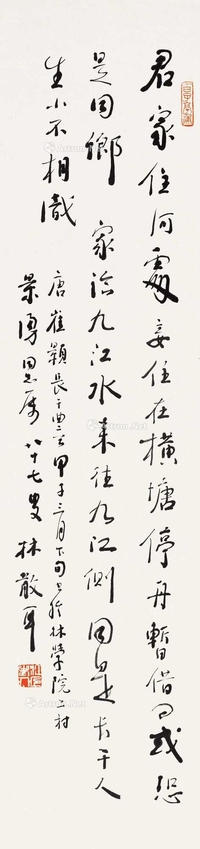 君家住何處妾住在橫塘停舟暫借問或恐
是同鄉 家臨九江水来往九江側同是长干人
生小不相識
唐崔顥長干曲二首甲子三月下旬
林學院
同志属 八十七叟 林散耳